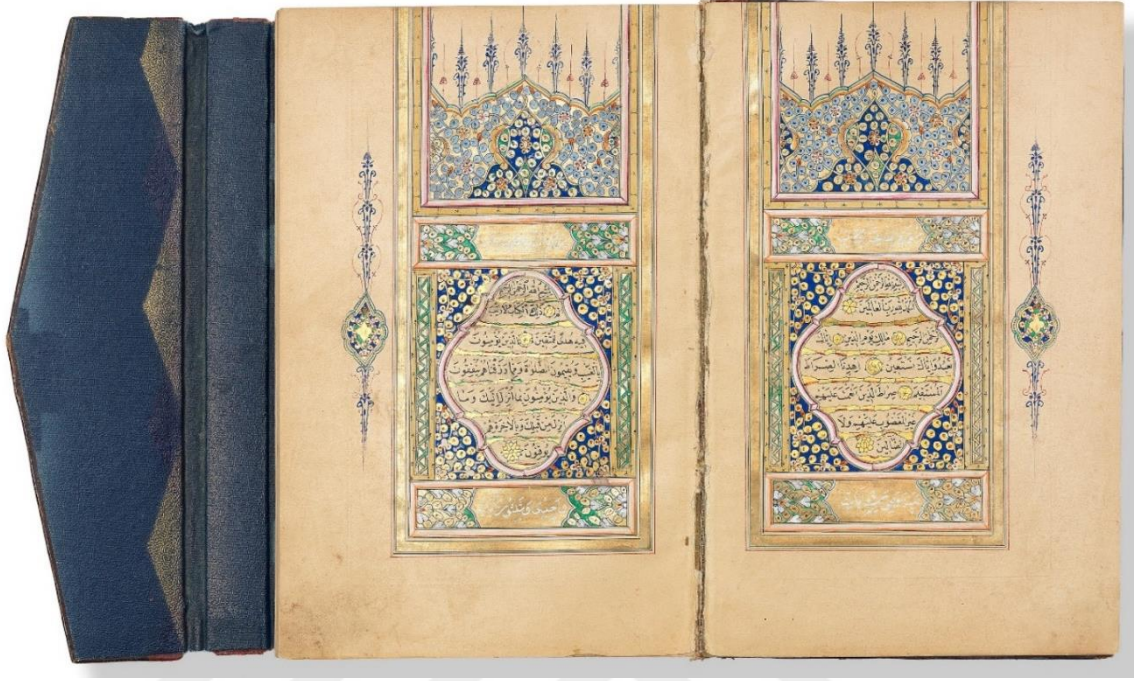 بسم الله الرحمن الرحيم
الحمد لله رب العالمين
الرحمن الرحيم مالك يوم الدين اياك
نعبد واياك نستعين اهدنا الصراط
المستقيم صراط الذين انعمت عليهم
غير المغضوب عليهم ولا
الضالين
بسم الله الرحمن الرحيم
الم ذلك الكتاب لا ريب
فيه هدى للمتقين الذين يؤمنون
بالغيب ويقيمون الصلوة ومما رزقناهم ينفقون
والذين يؤمنون بما انزل اليك وما
انزل من قبلك وبالاخرة هم
يوقنون